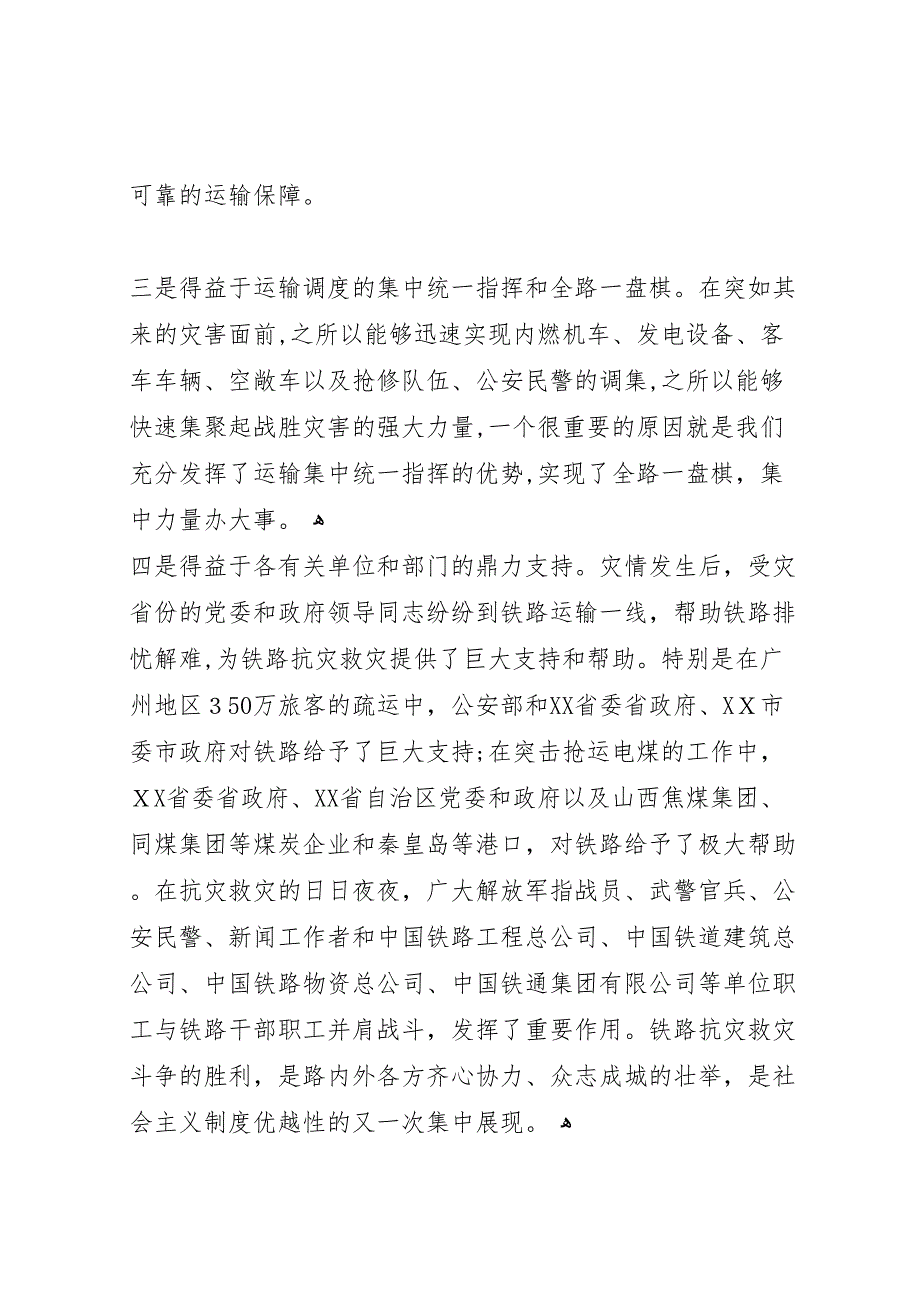 可靠的运输保障。
三是得益于运输调度的集中统一指挥和全路一盘棋。在突如其
来的灾害面前,之所以能够迅速实现内燃机车、发电设备、客
车车辆、空敞车以及抢修队伍、公安民警的调集,之所以能够
快速集聚起战胜灾害的强大力量,一个很重要的原因就是我们
充分发挥了运输集中统一指挥的优势,实现了全路一盘棋，集
中力量办大事。 ﻫ
四是得益于各有关单位和部门的鼎力支持。灾情发生后，受灾
省份的党委和政府领导同志纷纷到铁路运输一线，帮助铁路排
忧解难,为铁路抗灾救灾提供了巨大支持和帮助。特别是在广
州地区３50万旅客的疏运中，公安部和XX省委省政府、XＸ市
委市政府对铁路给予了巨大支持;在突击抢运电煤的工作中，
ＸX省委省政府、XX省自治区党委和政府以及山西焦煤集团、
同煤集团等煤炭企业和秦皇岛等港口，对铁路给予了极大帮助
。在抗灾救灾的日日夜夜，广大解放军指战员、武警官兵、公
安民警、新闻工作者和中国铁路工程总公司、中国铁道建筑总
公司、中国铁路物资总公司、中国铁通集团有限公司等单位职
工与铁路干部职工并肩战斗，发挥了重要作用。铁路抗灾救灾
斗争的胜利，是路内外各方齐心协力、众志成城的壮举，是社
会主义制度优越性的又一次集中展现。 ﻫ